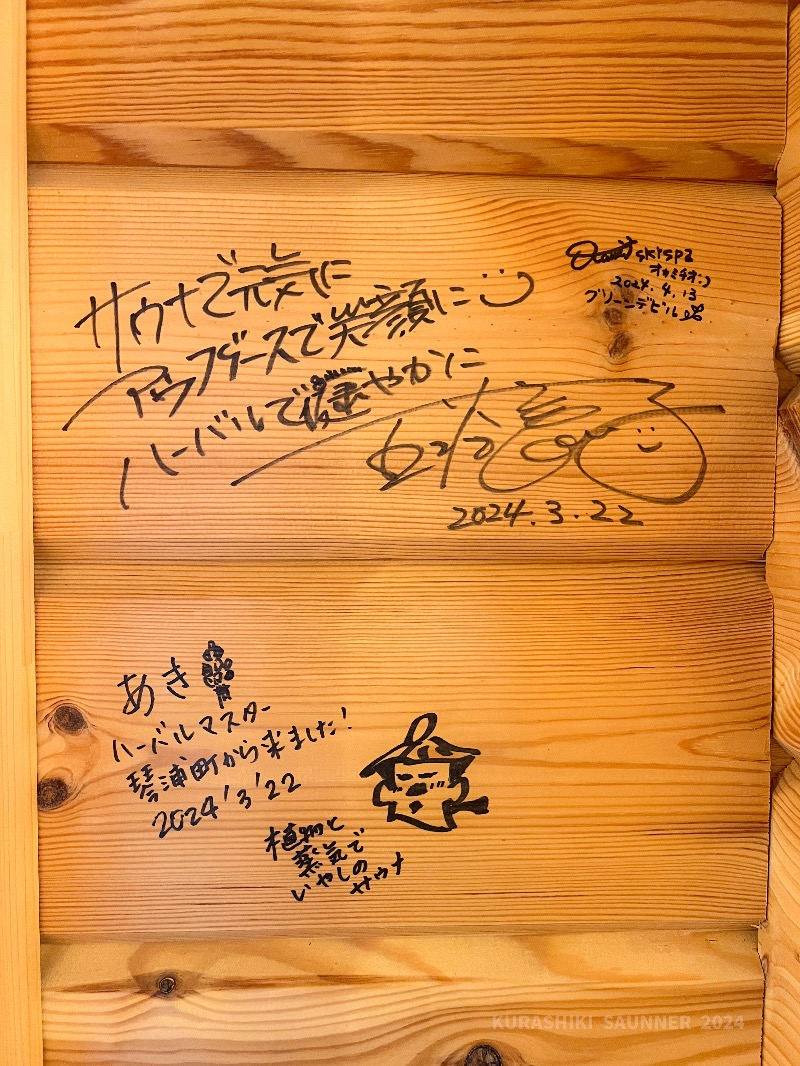 サウナで元気に
アウフグースで笑顔に
ハーバルで健やかに
2024.3.22
skyspa
オカミチオ:)
2024.4.13
グリーンデビル
あき
ハーバルマスター
琴浦町から来ました!
2024'3'22
植物と
蒸気で
いやしの
サウナ
KURASHIKI SAUNNER 2024